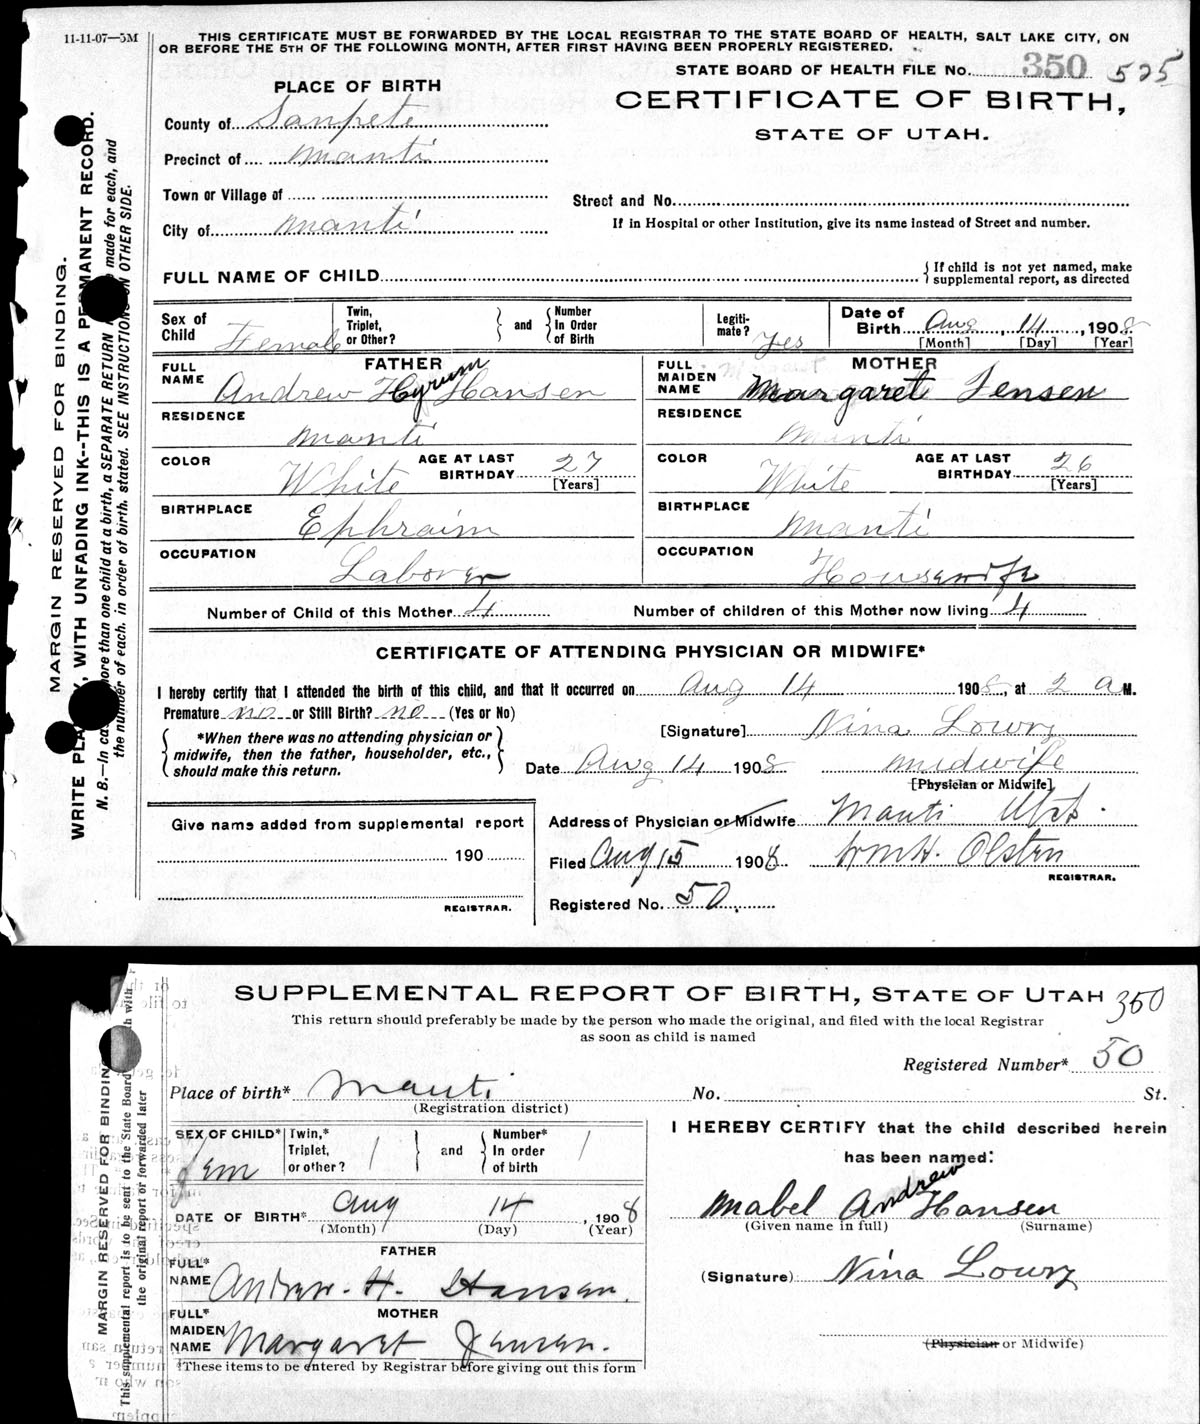 11-11-07—5M
THIS CERTIFICATE MUST BE FORWARDED BY THE LOCAL REGISTRAR TO THE STATE BOARD OF HEALTH, SALT LAKE CITY, ON
OR BEFORE THE 5TH OF THE FOLLOWING MONTH, AFTER FIRST HAVING BEEN PROPERLY REGISTERED.
STATE BOARD OF HEALTH FILE No. 350 525
PLACE OF BIRTH
CERTIFICATE OF BIRTH,
STATE OF UTAH.
County of Sanpete
Precinct of Manti
Town or Village of
Street and No.
City of Manti
If in Hospital or other Institution, give its name instead of Street and number.
FULL NAME OF CHILD
If child is not yet named, make
supplemental report, as directed
Sex of Child Female
Twin, Triplet, or Other?
and
Number In Order of Birth
Legitimate? Yes
Date of Birth Aug, 14, 1908
[Month] [Day] [Year]
FATHER
FULL NAME Andrew Hyrum Hansen
MOTHER
FULL MAIDEN NAME Margaret Jensen
RESIDENCE Manti
RESIDENCE Manti
COLOR White AGE AT LAST BIRTHDAY 27 [Years]
COLOR White AGE AT LAST BIRTHDAY 26 [Years]
BIRTHPLACE Ephraim
BIRTHPLACE Manti
OCCUPATION Laborer
OCCUPATION Housewife
Number of Child of this Mother 4
Number of children of this Mother now living 4
CERTIFICATE OF ATTENDING PHYSICIAN OR MIDWIFE*
I hereby certify that I attended the birth of this child, and that it occurred on Aug 14 1908, at 2 a M.
Premature no or Still Birth? no (Yes or No)
*When there was no attending physician or
midwife, then the father, householder, etc.,
should make this return.
[Signature] Nina Lowry
Date Aug 14 1908 midwife
[Physician or Midwife]
Give name added from supplemental report
190
REGISTRAR.
Address of Physician or Midwife Manti Utah.
Filed Aug 15 1908 Wm H. Olsten
REGISTRAR.
Registered No. 50.
MARGIN RESERVED FOR BINDING.
WRITE PLA , WITH UNFADING INK--THIS IS A PERMANENT RECORD.
N. B.—In cas more than one child at a birth, a SEPARATE RETURN made for each, and
the number of each, in order of birth, stated. SEE INSTRUCTIONS ON OTHER SIDE.
SUPPLEMENTAL REPORT OF BIRTH, STATE OF UTAH 350
This return should preferably be made by the person who made the original, and filed with the local Registrar
as soon as child is named
Registered Number* 50
Place of birth* Manti No. St.
(Registration district)
SEX OF CHILD* Fem
Twin,* Triplet, or other? 1
and
Number* In order of birth 1
DATE OF BIRTH* Aug 14, 1908
(Month) (Day) (Year)
FATHER
FULL* NAME Andrew. H. Hansen.
MOTHER
FULL* MAIDEN NAME Margaret Jensen.
*These items to be entered by Registrar before giving out this form
I HEREBY CERTIFY that the child described herein
has been named:
Mabel Andrew Hansen
(Given name in full) (Surname)
(Signature) Nina Lowry
(Physician or Midwife)
MARGIN RESERVED FOR BINDING
This supplemental report is to be sent to the State Board
the original report or forwarded later